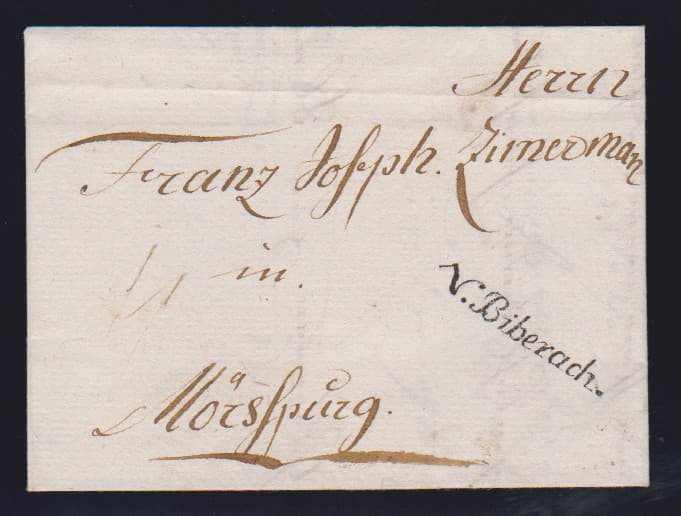 Herrn
Franz Joseph. Zimerman
in.
Mörsspurg.
V. Biberach.